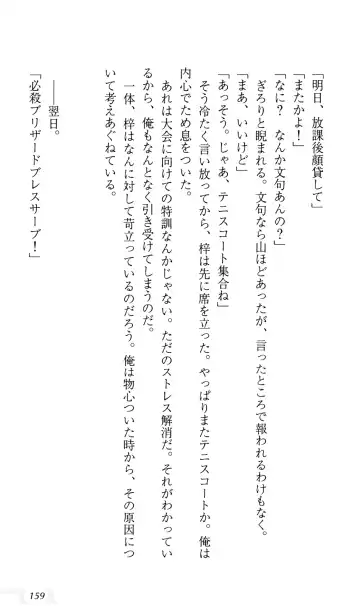 「明日、放課後顔貸して」
「またかよ！」
「なに？　なんか文句あんの？」
　ぎろりと睨まれる。文句なら山ほどあったが、言ったところで報われるわけもなく。
「まあ、いいけど」
「あっそう。じゃあ、テニスコート集合ね」
　そう冷たく言い放ってから、梓は先に席を立った。やっぱりまたテニスコートか。俺は
内心でため息をついた。
　あれは大会に向けての特訓なんかじゃない。ただのストレス解消だ。それがわかってい
るから、俺もなんとなく引き受けてしまうのだ。
　一体、梓はなんに対して苛立っているのだろう。俺は物心ついた時から、その原因につ
いて考えあぐねている。
――翌日。
「必殺ブリザードブレスサーブ！」
159